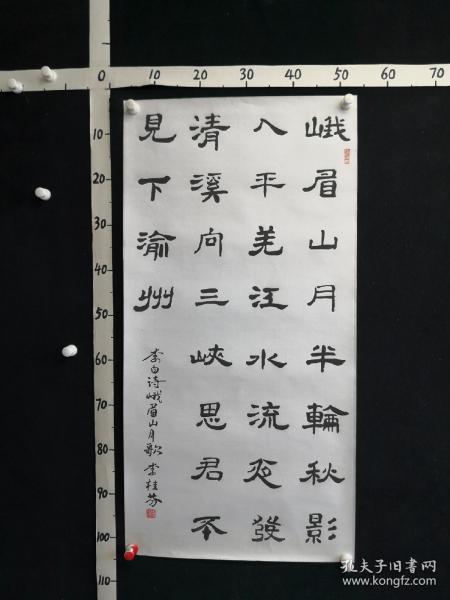 0 10 20 30 40 50 60 70
10
20
30
40
50
60
70
80
90
100
110
峨眉山月半輪秋影
入平羌江水流夜發
清溪向三峽思君不
見下渝州
李白诗峨眉山月歌 李桂芬
孔夫子旧书网
www.kongfz.com